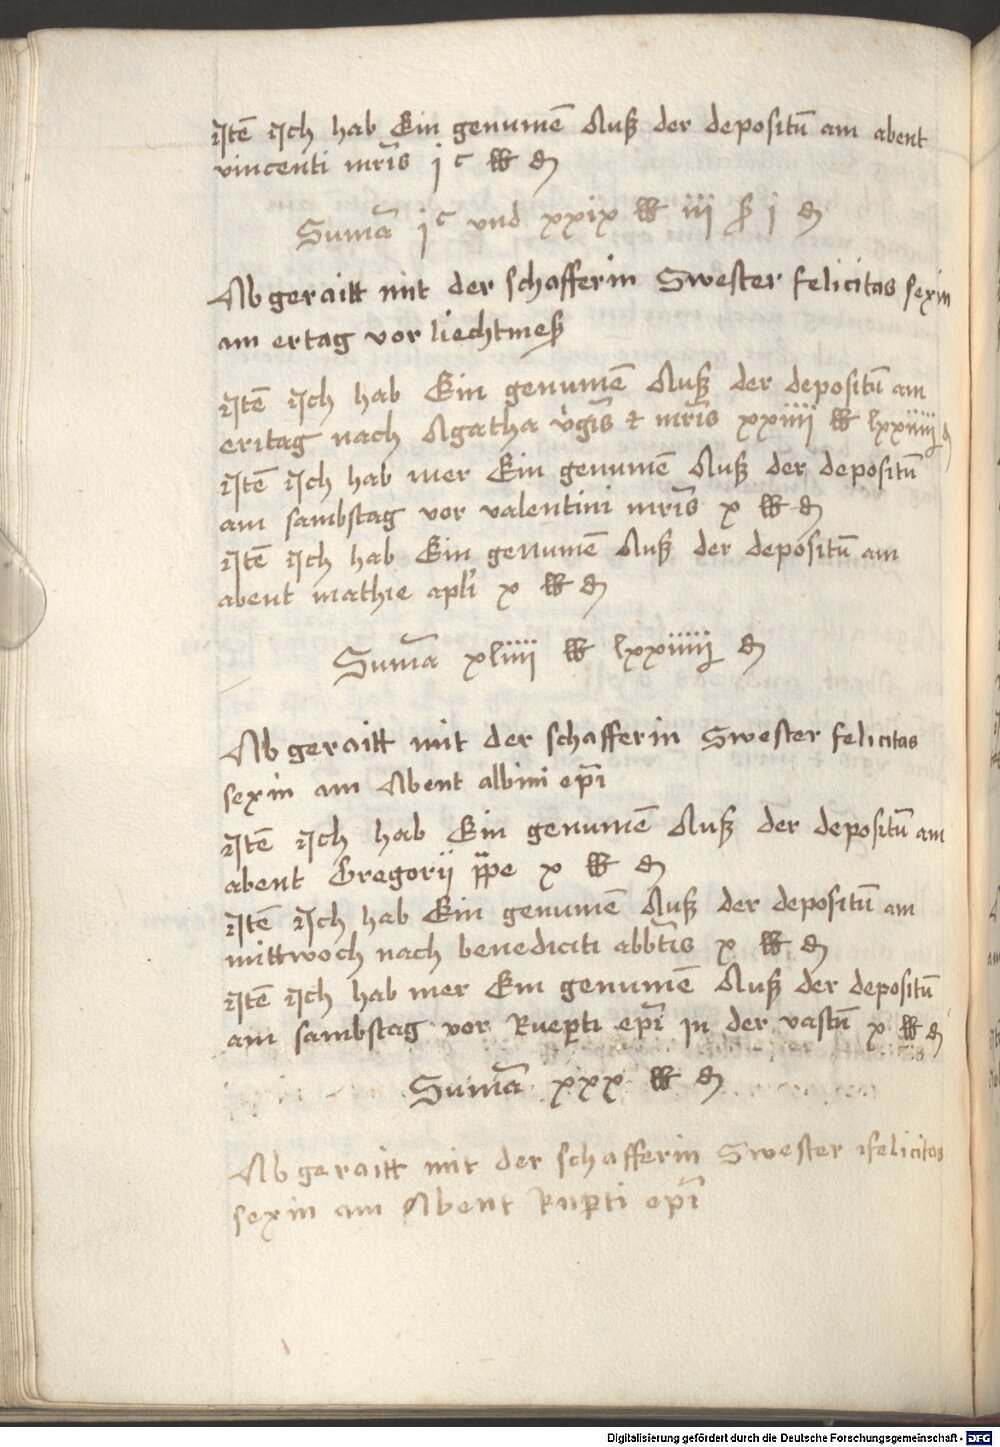 Jtē Jch hab Ein genumē Auß der depositū am abent
vincenti mr̄is jc ℔ ₰
Sum̄a jc vnd xxix ℔ iij ß j ₰
Ab geraitt mit der schafferin Swester felicitas sexin
am ertag vor liechtmeß
Jtē Jch hab Ein genumē Auß der depositū am
eritag nach Agatha v̉gīs et mr̄is xxiiij ℔ lxxiiij ₰
Jtē Jch hab mer Ein genumē Auß der depositū
am sambstag vor valentini mr̄is x ℔ ₰
Jtē Jch hab Ein genumē Auß der depositū am
abent mathie apl̓i x ℔ ₰
Sum̄a xliiij ℔ lxxiiij ₰
Ab geraitt mit der schafferin Swester felicitas
sexin am Abent albini ep̄i
Jtē Jch hab Ein genumē Auß der depositū am
abent Gregorij p̄pe x ℔ ₰
Jtē Jch hab Ein genumē Auß der depositū am
mittwoch nach benediciti abb̄tis x ℔ ₰
Jtē Jch hab mer Ein genumē Auß der depositū
am sambstag vor Ruep̱ti ep̄i jn der vastū x ℔ ₰
Sum̄a xxx ℔ ₰
Ab geraitt mit der schafferin Swester felicitas
sexin am Abent Rup̱ti ep̄i
Digitalisierung gefördert durch die Deutsche Forschungsgemeinschaft - DFG